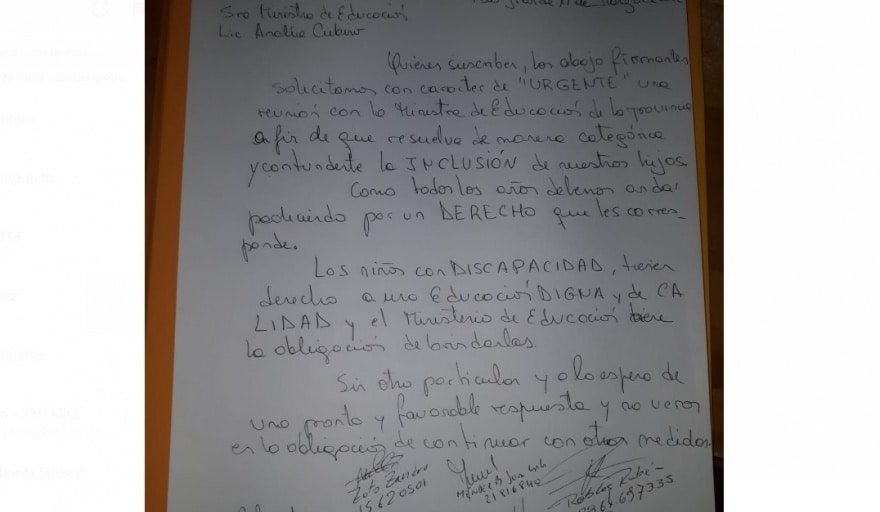 Sra Ministra de Educación
Lic Analía Cubino
Quienes suscriben, los abajo firmantes
solicitamos con caracter de "URGENTE" una
reunión con la Ministra de Educación de la provincia
a fin de que resuelva de manera categórica
y contundente la INCLUSIÓN de nuestros hijos.
Como todos los años debemos andar
padeciendo por un DERECHO que les corres-
ponde.
Los niños con DISCAPACIDAD, tienen
derecho a una Educación DIGNA y de CA
LIDAD y el Ministerio de Educación tiene
la obligación de brindarlas
Sin otro particular y a la espera de
una pronta y favorable respuesta y no vernos
en la obligación de continuar con otras medidas.
15620501
21816840